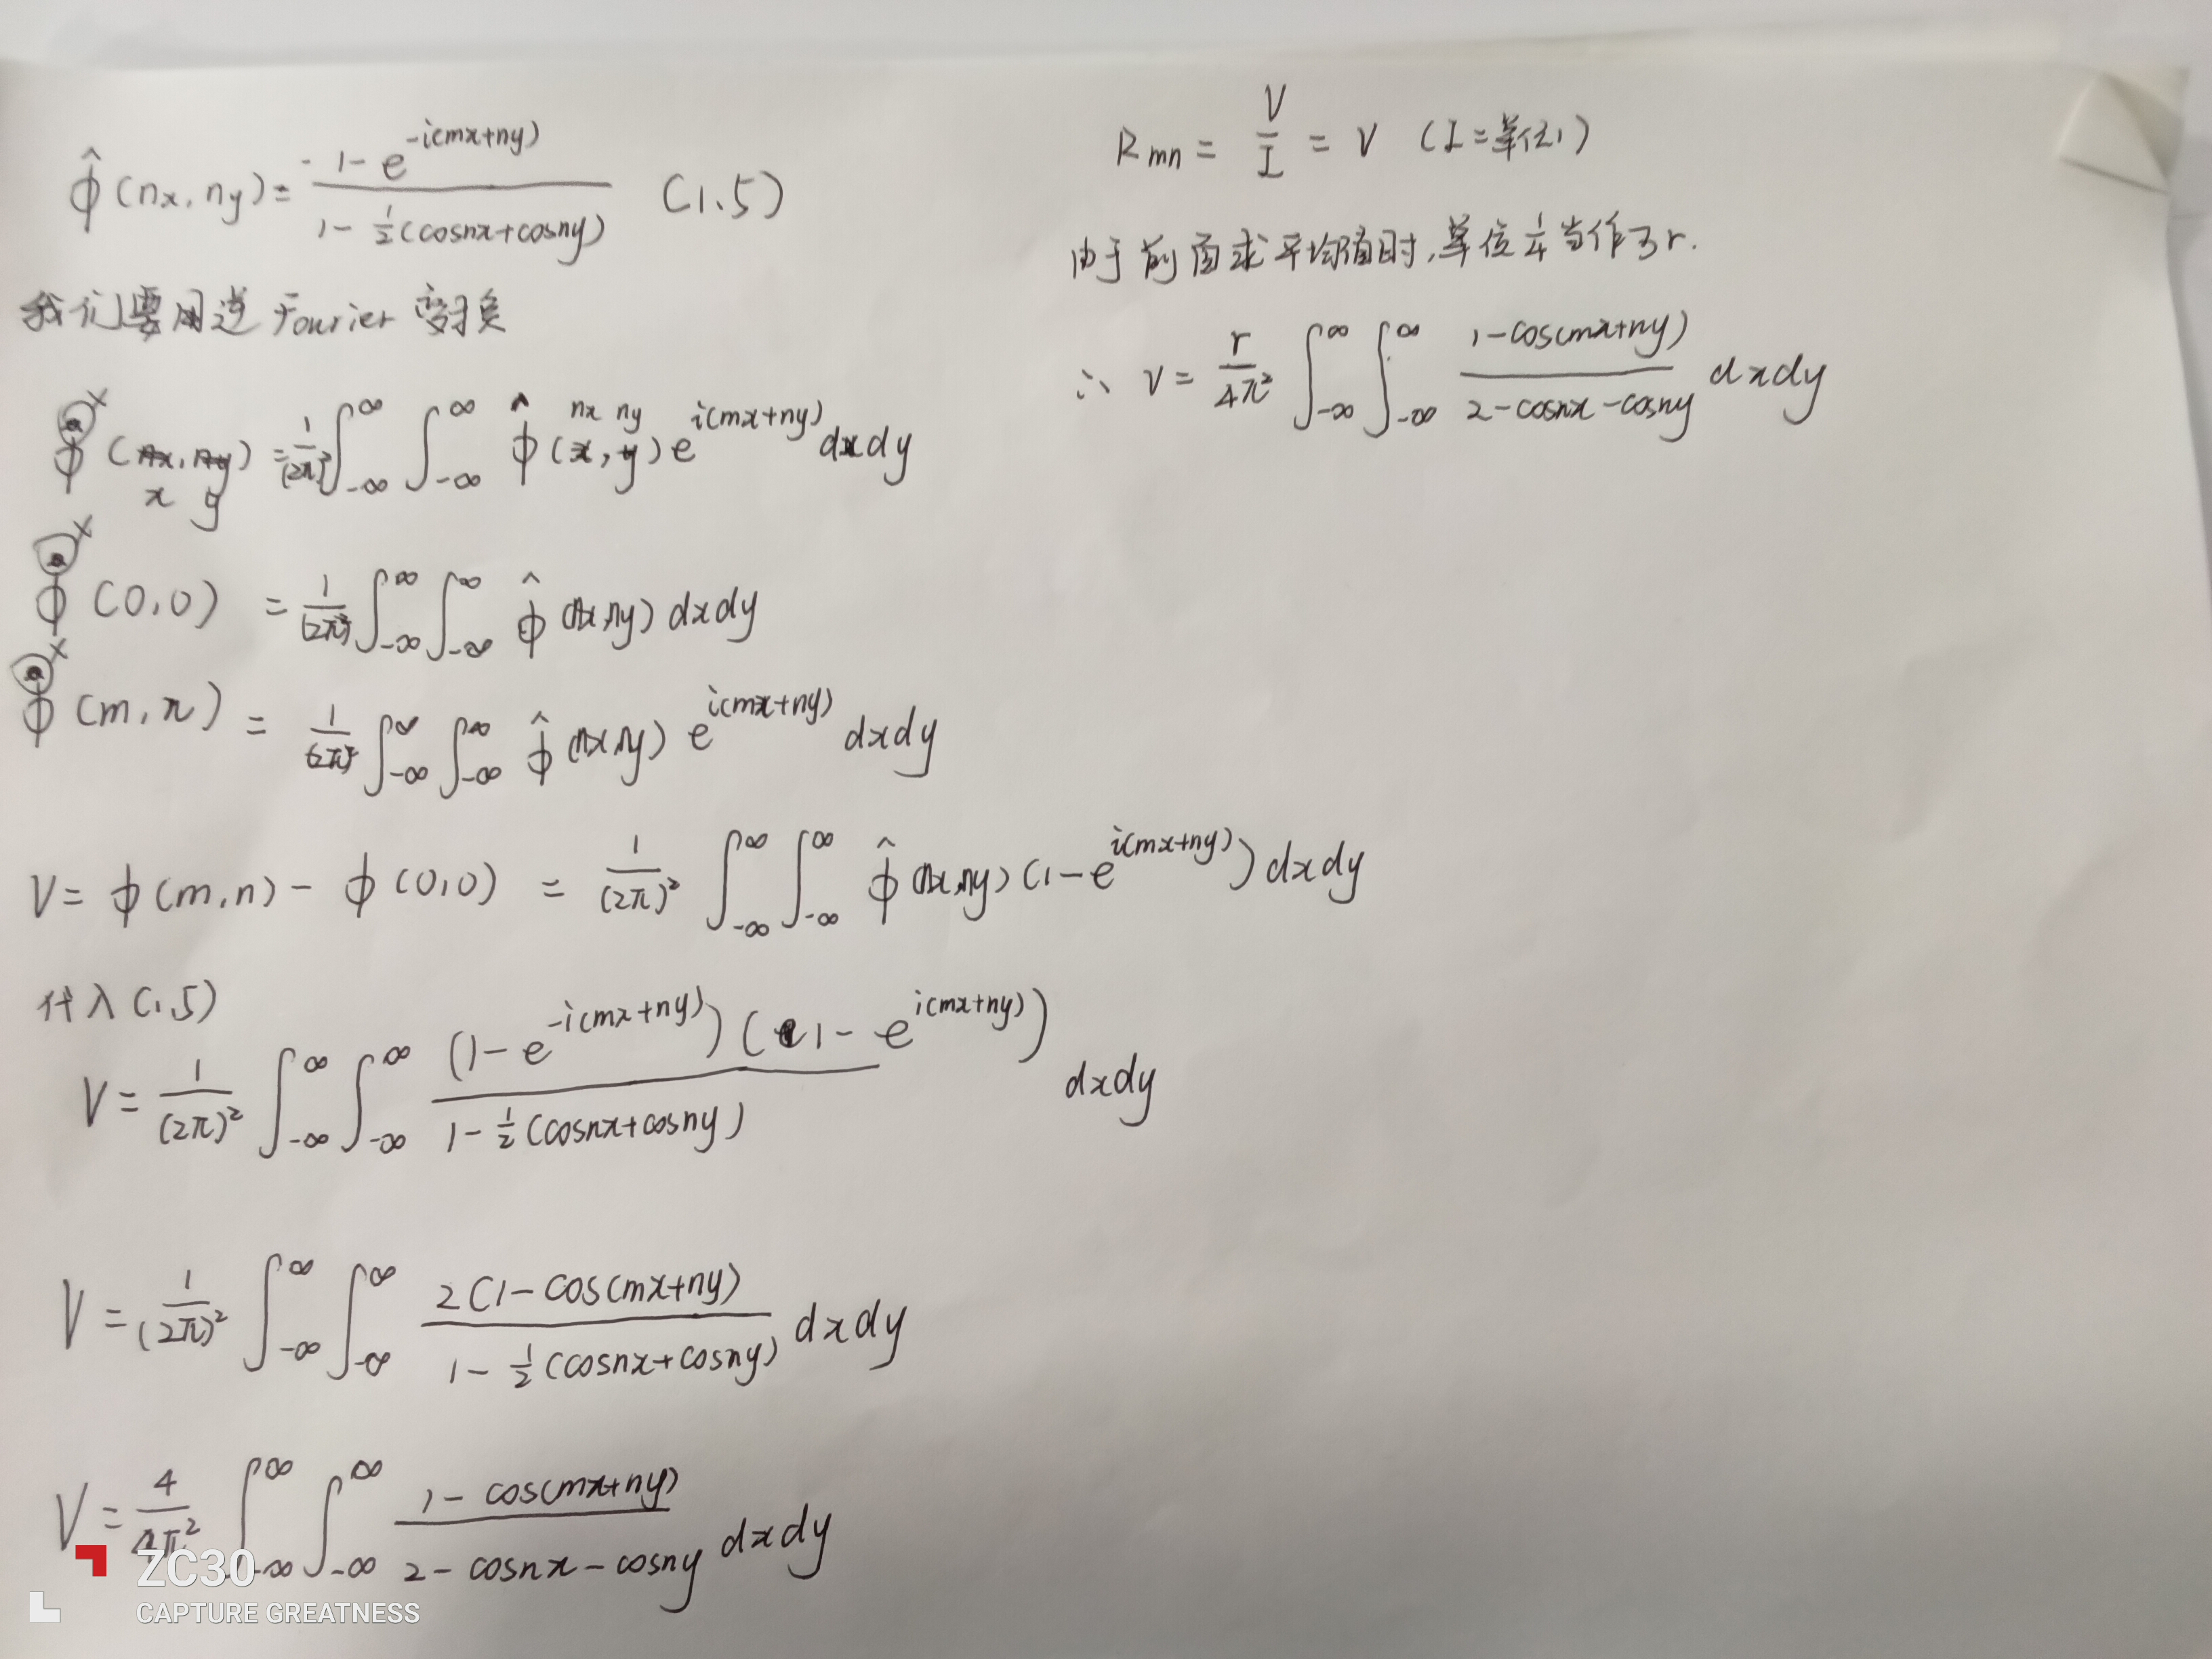 φ̂(nx, ny) = -1-e^{-i(mx+ny)} / 1-½(cosnx+cosny) (1,5)
我们要用逆Fourier变换
φ(x, y) = 1/(2π)² ∫_{-∞}^{∞} ∫_{-∞}^{∞} φ̂(nx, ny) e^{i(mx+ny)} dxdy
φ(0,0) = 1/(2π)² ∫_{-∞}^{∞} ∫_{-∞}^{∞} φ̂(nx,ny) dxdy
φ(m,n) = 1/(2π)² ∫_{-∞}^{∞} ∫_{-∞}^{∞} φ̂(nx,ny) e^{i(mx+ny)} dxdy
V = φ(m,n) - φ(0,0) = 1/(2π)² ∫_{-∞}^{∞} ∫_{-∞}^{∞} φ̂(nx,ny)(1-e^{i(mx+ny)}) dxdy
代入(1,5)
V = 1/(2π)² ∫_{-∞}^{∞} ∫_{-∞}^{∞} (1-e^{-i(mx+ny)})(1-e^{i(mx+ny)}) / 1-½(cosnx+cosny) dxdy
V = 1/(2π)² ∫_{-∞}^{∞} ∫_{-∞}^{∞} 2(1-cos(mx+ny) / 1-½(cosnx+cosny) dxdy
V = 4/4π² ∫_{-∞}^{∞} ∫_{-∞}^{∞} 1-cos(mx+ny) / 2-cosnx-cosny dxdy
R_{mn} = V/I = V (I=单位1)
由于前面求平均值时,单位¼当作了r.
∴ V = r/4π² ∫_{-∞}^{∞} ∫_{-∞}^{∞} 1-cos(mx+ny) / 2-cosnx-cosny dxdy
ZC30
CAPTURE GREATNESS